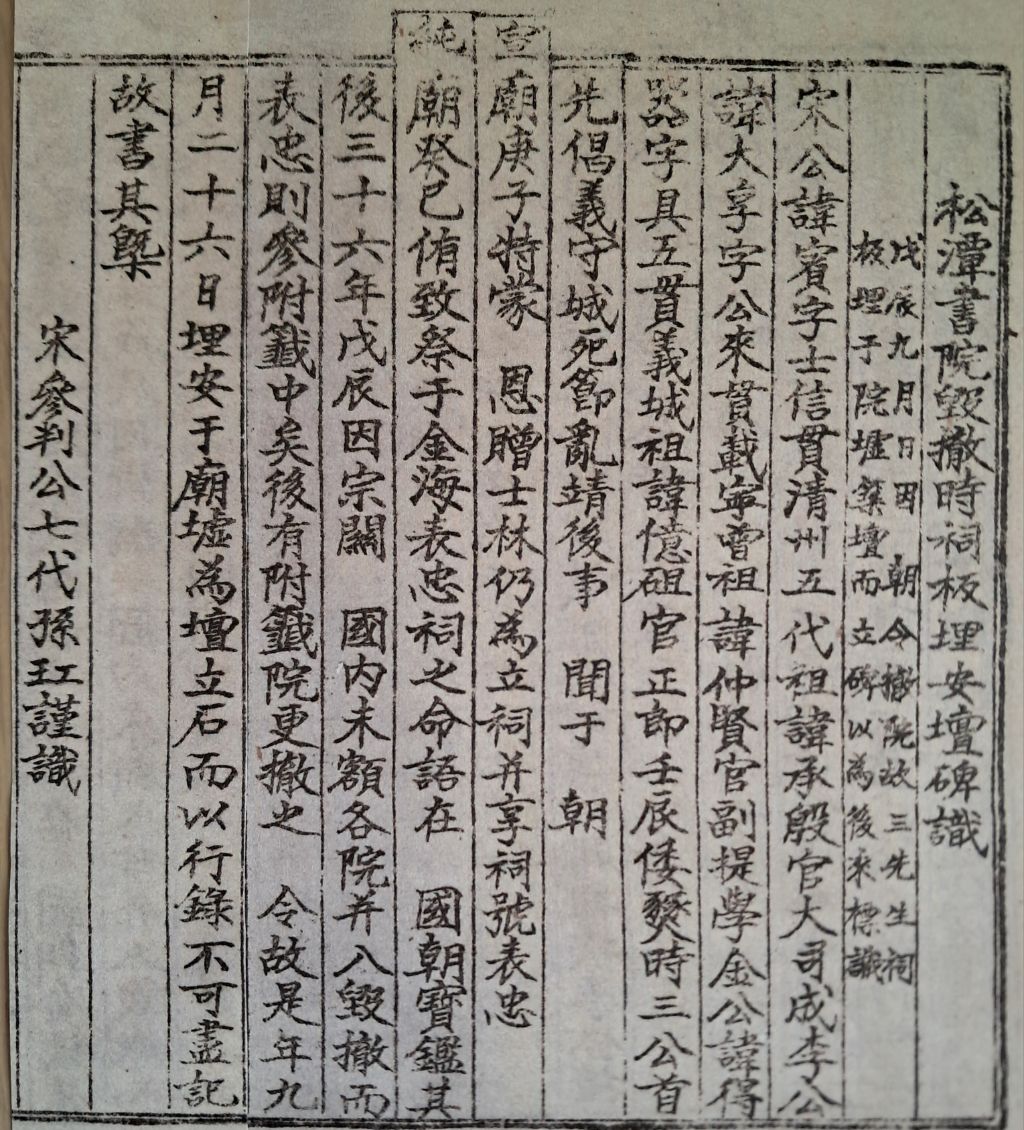 松潭書院毀撤時祠板埋安壇碑識
戊辰九月日因 朝令撤院故三先生祠
板埋于院墟築壇而立碑以為後來標識
宋公諱賓字士信貫清州五代祖諱承殷官大司成李公
諱大亨字公來貫載寧曾祖諱仲賢官副提學金公諱得
器字具五貫義城祖諱億砠官正郎壬辰倭燹時三公首
先倡義守城死節亂靖後事 聞于 朝
宣廟庚子特蒙 恩贈士林仍為立祠并享祠號表忠
純廟癸巳侑致祭于金海表忠祠之命語在 國朝寶鑑其
後三十六年戊辰因宗關 國內未額各院并入毀撤而
表忠則參附籤中矣後有附籤院更撤之 令故是年九
月二十六日埋安于廟墟為壇立石而以行錄不可盡記
故書其槩
宋參判公七代孫玒謹識